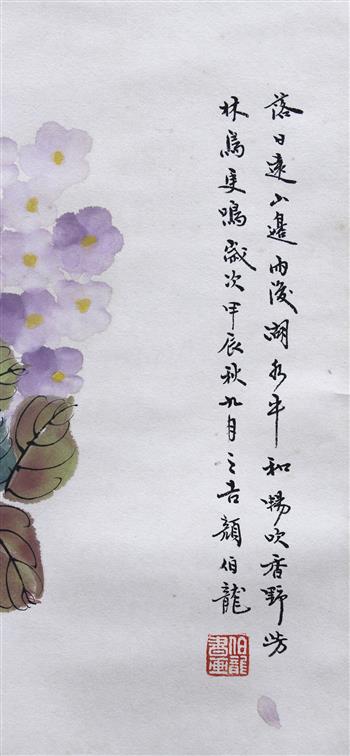 落日遠山邊雨後湖水平和暢吹香野芳
林鳥更鳴歲次甲辰秋九月之吉顏伯龍
伯龍書畫